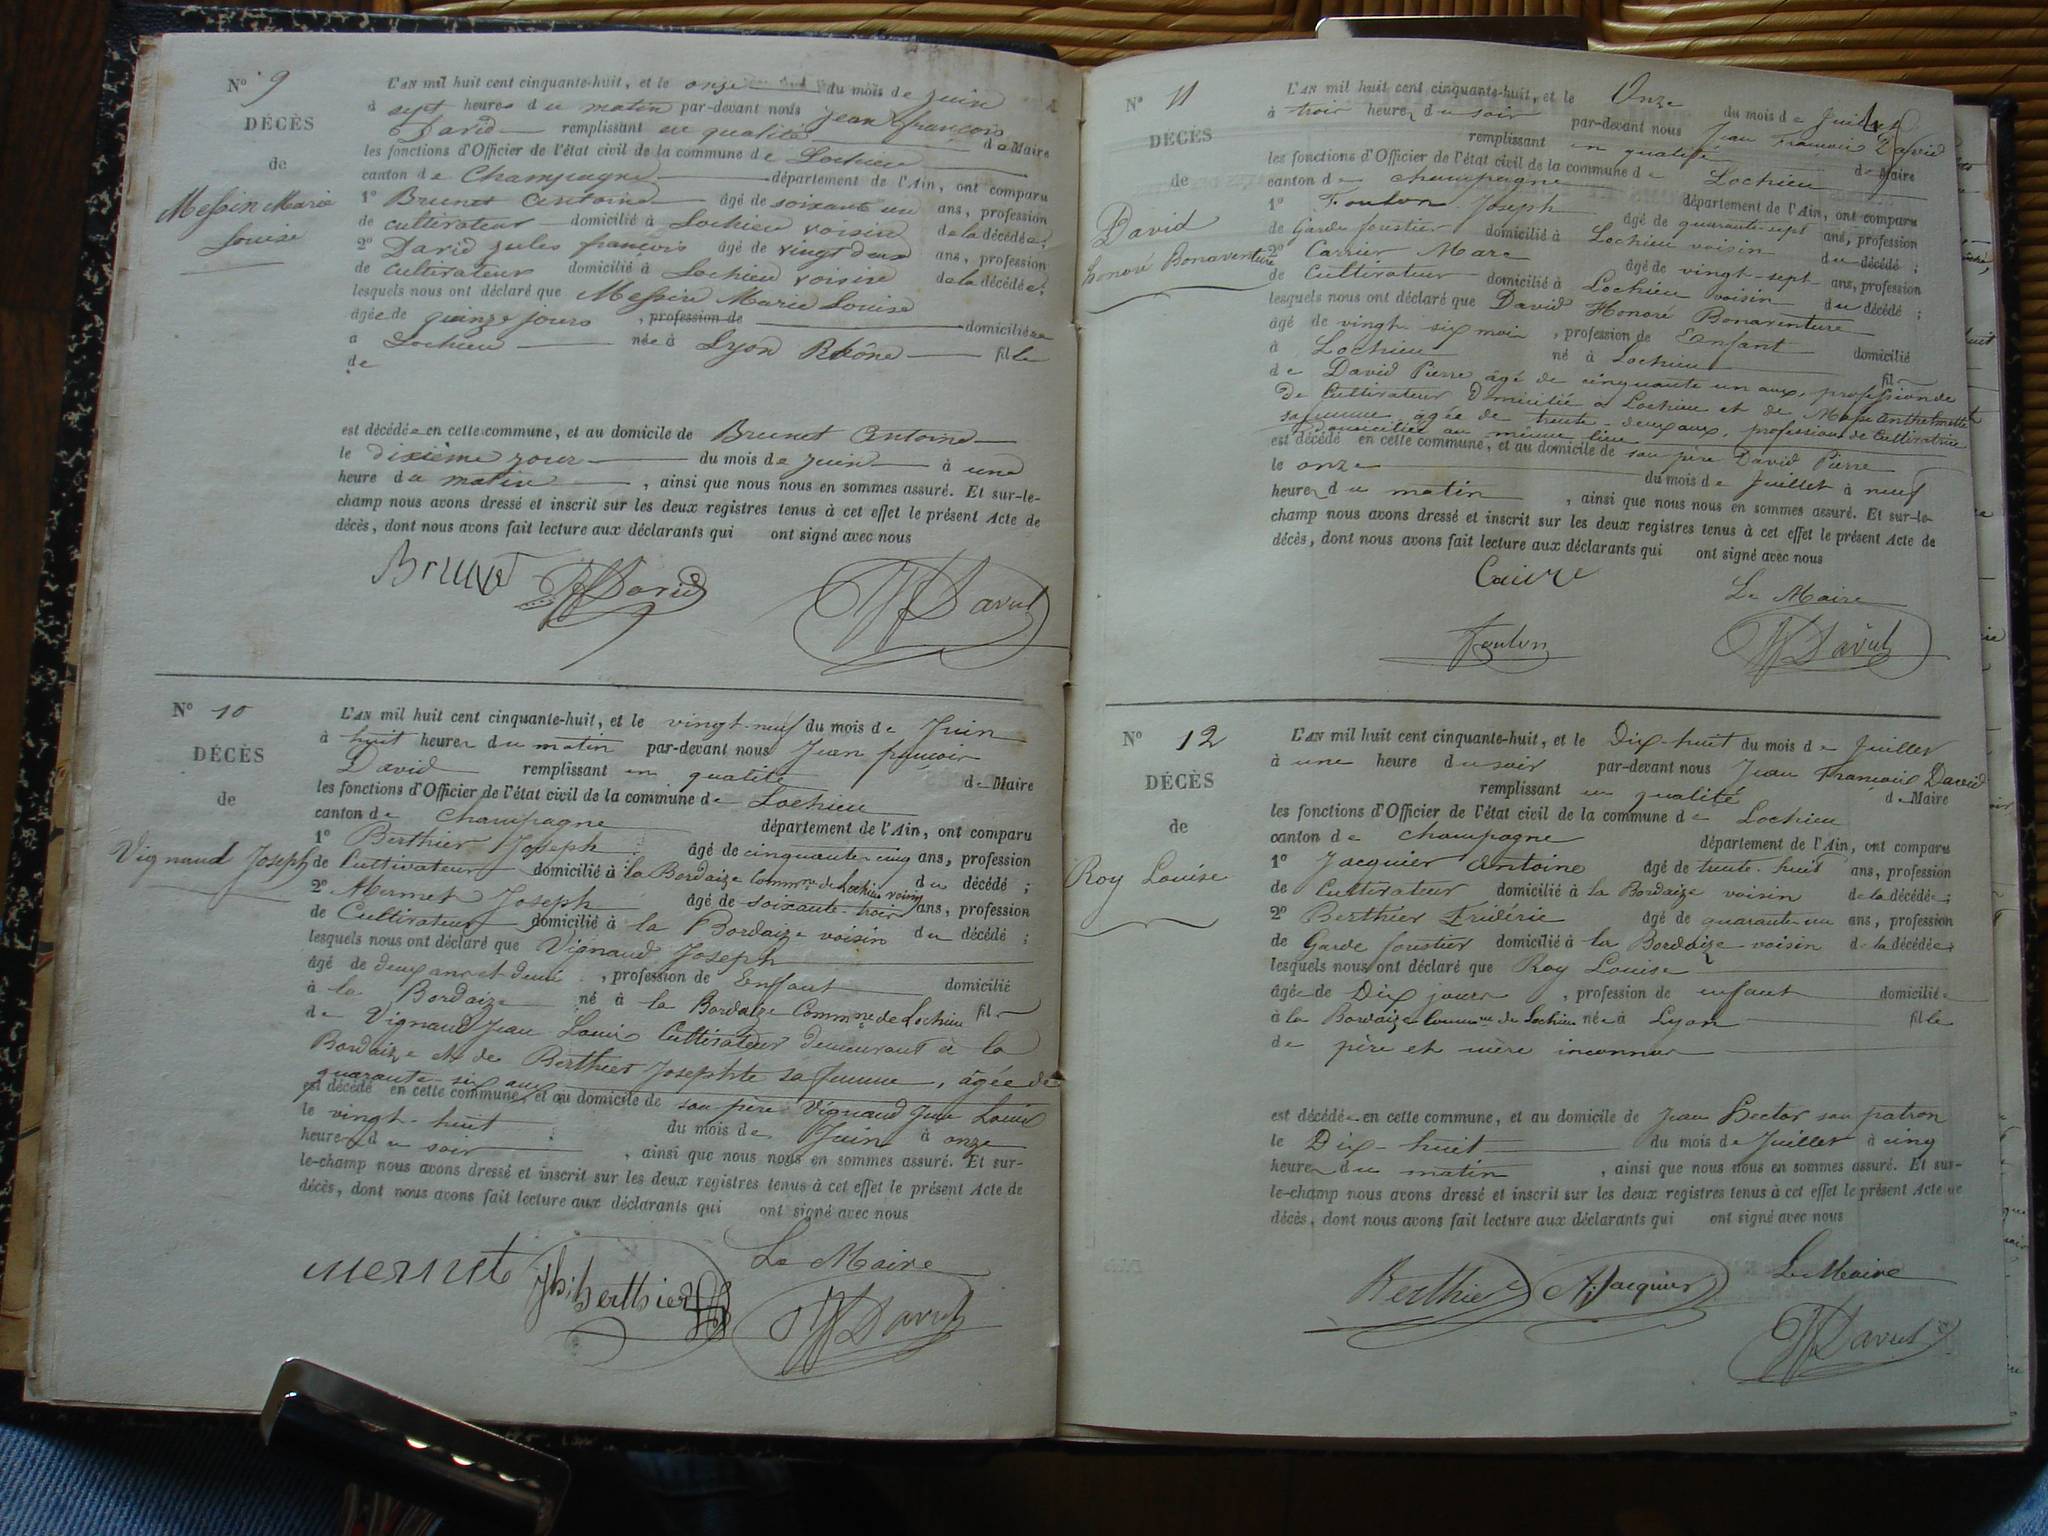 N° 9
DÉCÈS
de
Messin Marie
Louise
L'AN mil huit cent cinquante-huit, et le onze du mois de juin
à sept heures du matin par-devant nous jean françois
David remplissant en qualité de Maire
les fonctions d'Officier de l'état civil de la commune de Lochieu
canton de Champagne département de l'Ain, ont comparu
1° Brunet Antoine âgé de soixante un ans, profession
de cultivateur domicilié à Lochieu voisin de la décédée;
2° David jules françois âgé de vingt deux ans, profession
de cultivateur domicilié à Lochieu voisin de la décédée;
lesquels nous ont déclaré que Messin Marie Louise
âgée de quinze jours , profession de domiciliée
a Lochieu née à Lyon Rhône fille
de
est décédée en cette commune, et au domicile de Brunet Antoine
le dixième jour du mois de juin à une
heure du matin , ainsi que nous nous en sommes assuré. Et sur-le-
champ nous avons dressé et inscrit sur les deux registres tenus à cet effet le présent Acte de
décès, dont nous avons fait lecture aux déclarants qui ont signé avec nous
Brunet David David
N° 10
DÉCÈS
de
Vignaud Joseph
L'AN mil huit cent cinquante-huit, et le vingt-neuf du mois de Juin
à huit heures du matin par-devant nous Jean françois
David remplissant en qualité de Maire
les fonctions d'Officier de l'état civil de la commune de Lochieu
canton de Champagne département de l'Ain, ont comparu
1° Berthier Joseph âgé de cinquante-cinq ans, profession
de Cultivateur domicilié à la Bordaize Commne de Lochieu voisin du décédé ;
2° Mermet Joseph âgé de soixante-trois ans, profession
de Cultivateur domicilié à la Bordaize voisin du décédé ;
lesquels nous ont déclaré que Vignaud Joseph
âgé de deux ans et demi , profession de Enfant domicilié
à la Bordaize né à la Bordaize Commne de Lochieu fils
de Vignaud Jean Louis Cultivateur demeurant à la
Bordaize et de Berthier Josephte sa femme, âgée de
quarante-six ans
est décédé en cette commune, et au domicile de son père Vignaud Jean Louis
le vingt-huit du mois de Juin à onze
heures du soir , ainsi que nous nous en sommes assuré. Et sur-
le-champ nous avons dressé et inscrit sur les deux registres tenus à cet effet le présent Acte de
décès, dont nous avons fait lecture aux déclarants qui ont signé avec nous
Le Maire
mermet jh: berthier David
N° 11
DÉCÈS
de
David
honoré Bonaventure
L'AN mil huit cent cinquante-huit, et le Onze du mois de Juillet
à trois heures du soir par-devant nous Jean François David
remplissant en qualité de Maire
les fonctions d'Officier de l'état civil de la commune de Lochieu
canton de champagne département de l'Ain, ont comparu
1° Foulon Joseph âgé de quarante-sept ans, profession
de Garde forestier domicilié à Lochieu voisin du décédé ;
2° Carrier Marc âgé de vingt-sept ans, profession
de Cultivateur domicilié à Lochieu voisin du décédé ;
lesquels nous ont déclaré que David Honoré Bonaventure
âgé de vingt six mois , profession de Enfant domicilié
à Lochieu né à Lochieu fils
de David Pierre âgé de cinquante un ans, profession de
de Cultivateur Domicilié a Lochieu et de
sa femme âgée de trente-deux ans, profession de Cultivatrice
domiciliée au même lieu
est décédé en cette commune, et au domicile de son père David Pierre
le onze du mois de Juillet à neuf
heures du matin , ainsi que nous nous en sommes assuré. Et sur-le-
champ nous avons dressé et inscrit sur les deux registres tenus à cet effet le présent Acte de
décès, dont nous avons fait lecture aux déclarants qui ont signé avec nous
Le Maire
Foulon David
N° 12
DÉCÈS
de
Roy Louise
L'AN mil huit cent cinquante-huit, et le Dix-huit du mois de Juillet
à une heure du soir par-devant nous Jean François David
remplissant en qualité de Maire
les fonctions d'Officier de l'état civil de la commune de Lochieu
canton de champagne département de l'Ain, ont comparu
1° Jacquier Antoine âgé de trente-huit ans, profession
de Cultivateur domicilié à la Bordaize voisin de la décédée;
2° Berthier Frédéric âgé de quarante-un ans, profession
de Garde forestier domicilié à la Bordaize voisin de la décédée;
lesquels nous ont déclaré que Roy Louise
âgée de Dix jours , profession de enfant domiciliée
à la Bordaize Commne de Lochieu née à Lyon fille
de père et mère inconnus
est décédée en cette commune, et au domicile de Jean Hector son patron
le Dix-huit du mois de Juillet à cinq
heures du matin , ainsi que nous nous en sommes assuré. Et sur-
le-champ nous avons dressé et inscrit sur les deux registres tenus à cet effet le présent Acte de
décès, dont nous avons fait lecture aux déclarants qui ont signé avec nous
Le Maire
Berthier A. Jacquier
David